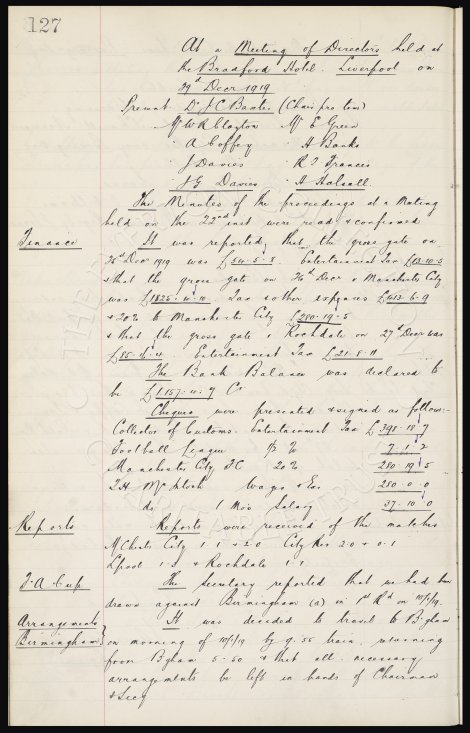 127
At a Meeting of Directors held at
the Bradford Hotel. Liverpool on
29th Decr 1919
Present Dr J C Baxter (Chair pro tem)
Mr W R Clayton Mr E Green
" A Coffey " A Banks
" J Davies " R T Frances
" J G Davies " H Halsall
The Minutes of the proceedings at a Meeting
held on the 22nd inst were read & confirmed
Finance It was reported that the gross gate on
Decr 1919 was £54-5-8. Entertainment Tax £13-10-5
& that the gross gate on 26th Decr v Manchester City
was £1825-4-10 Tax & other expenses £413-6-9
& 20% to Manchester City £280-19-5
& that the gross gate v Rochdale on 27th Decr was
Entertainment Tax £21-8-11
The Bank Balance was declared to
be £1157-4-7 Cr
Cheques were presented & signed as follows:-
Collector of Customs. Entertainment Tax £398-18-7
Football League ½ % 7-1-2
Manchester City FC 20% 280-19-5
T. H. McIntosh Wages & Exs 250-0-0
do 1 Mos Salary 37-10-0
Reports Reports were received of the matches
M Chester City 1-1 & 2-0 City Res 2-0 & 0-1
Lpool 1-2 & Rochdale 1-1
F.A. Cup The secretary reported that we had been
drawn against Birmingham (a) in 1st Rd on 10/1/19.
Arrangements It was decided to travel to B'gham
Birmingham on morning of 10/1/19 by 9.55 train, returning
from Bgham 5-50 & that all necessary
arrangements be left in hands of Chairman
& Secy